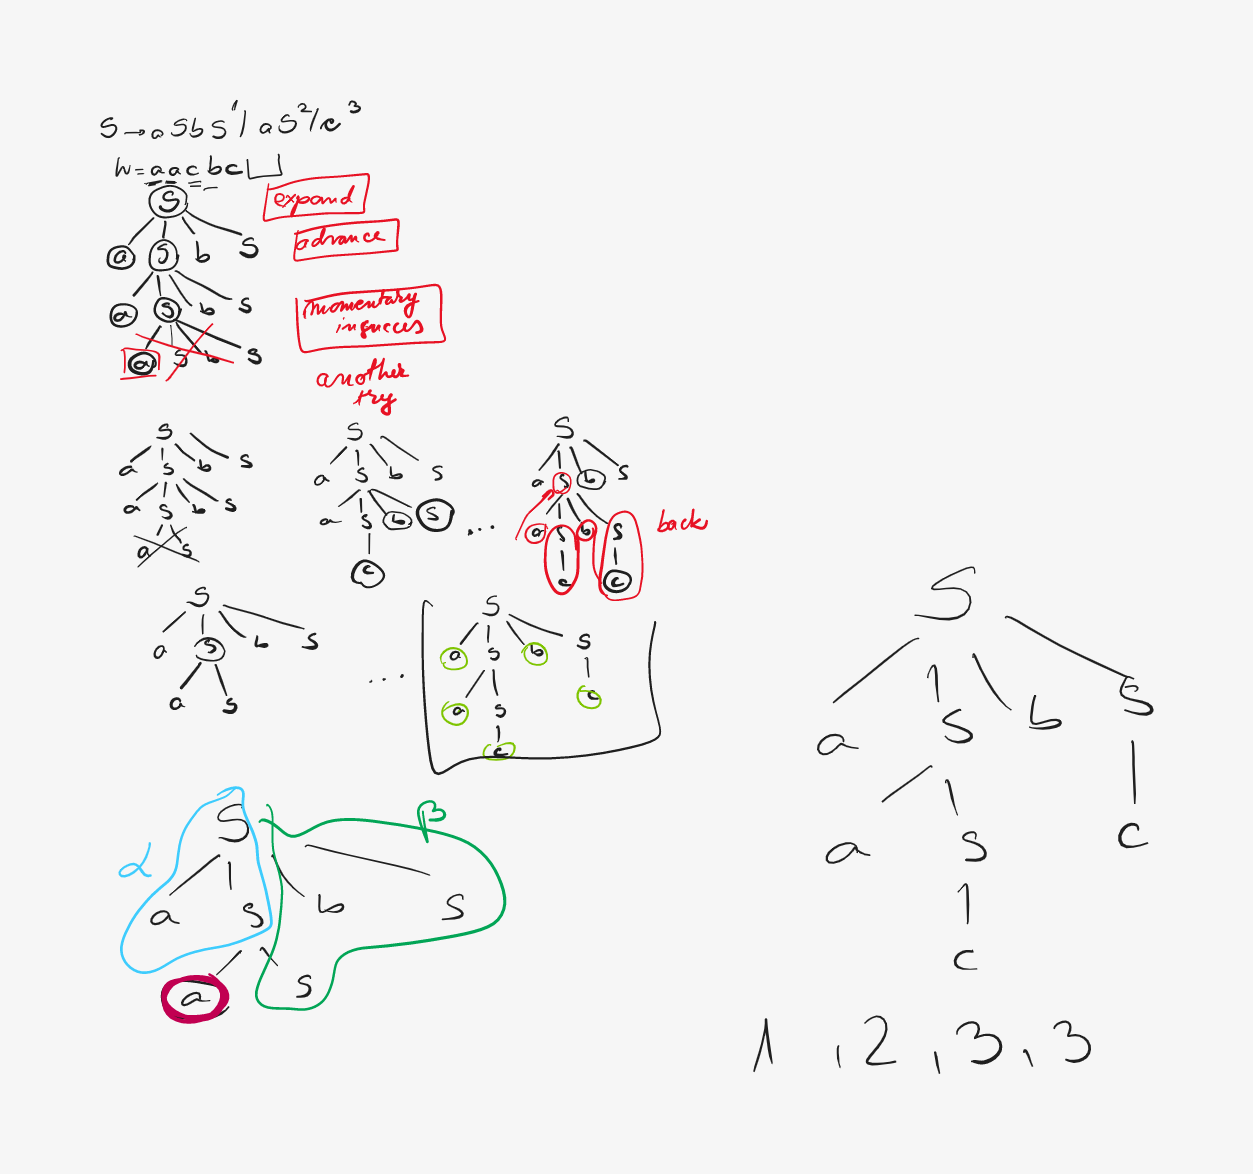 S → a S b S¹ | a S² | c³
w = a a c b c
S
expand
a S b S
advance
a S b S
momentary
insucces
a S b S
another
try
S
a S b S
a S b S
a S
S
a S b S
a S b S
c
...
S
a S b S
a S b S
c c
back
S
a S b S
a S
...
S
a S b S
a S c
c
S
a S b S
a S c
c
1 , 2 , 3 , 3
α
β
S
a S b S
a S